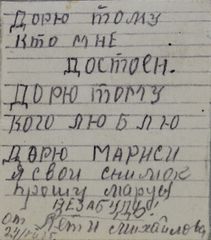 Дорю тому
кто мне
достоен.
Дорю тому
кого люблю
Дорю Мариси
я свои снимок
прошу Маруц
незабудь!
от Пети Михайлова